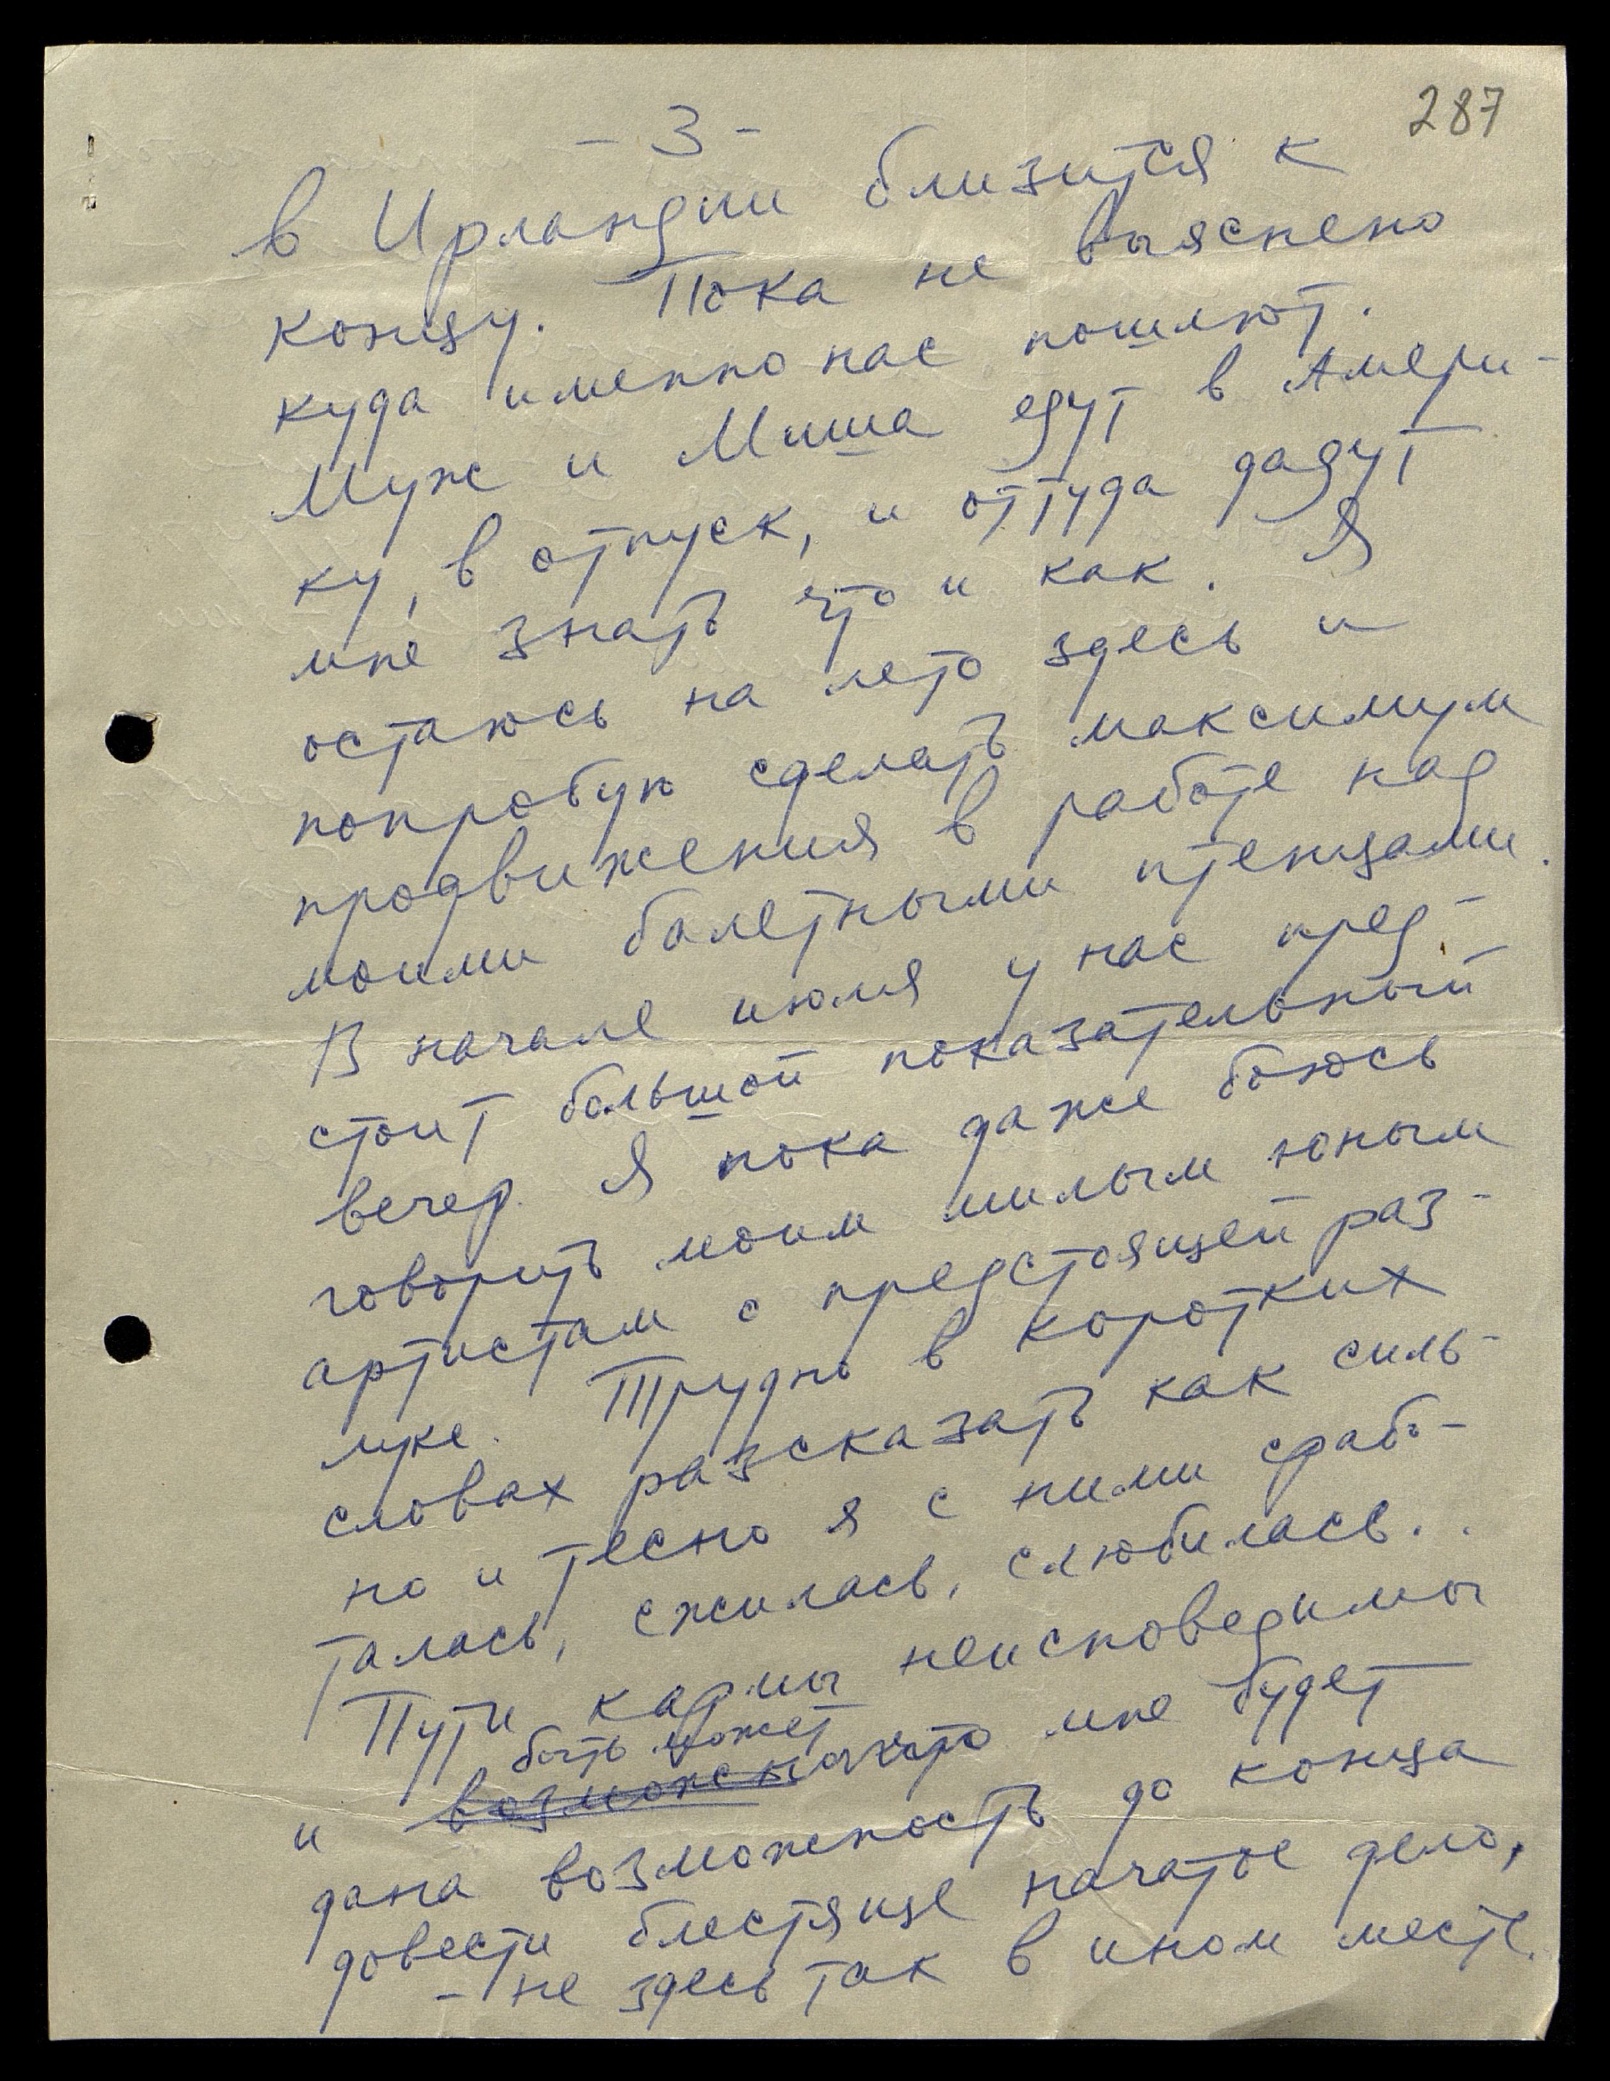 287
- 3 -
в Ирландии близится к
концу. Пока не выяснено
куда именно нас пошлют.
Муж и Миша едут в Амери-
ку, в отпуск, и оттуда дадут
мне знать что и как. Я
остаюсь на лето здесь и
попробую сделать максимум
продвижения в работе над
моими балетными птенцами.
В начале июля у нас пред-
стоит большой показательный
вечер. Я пока даже боюсь
говорить моим милым юным
артистам о предстоящей раз-
луке. Трудно в коротких
словах разсказать как силь-
но и тесно я с ними срабо-
талась, сжилась, слюбилась..
Пути кармы неисповедимы
быть может
и возможно что мне будет
дана возможность до конца
довести блестяще начатое дело,
- не здесь так в ином месте.